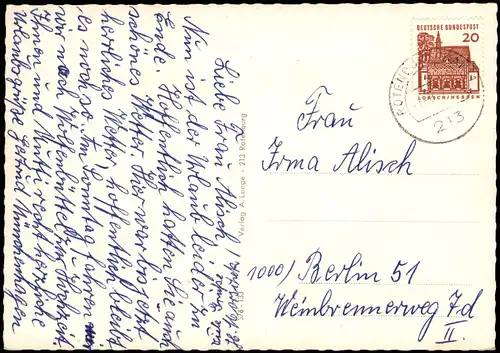 Liebe Frau Alisch
Nun ist der Urlaub leider zu
Ende. Hoffentlich hatten Sie auch
schönes Wetter. Hier war bis jetzt
herrliches Wetter, hoffentlich bleibt
es noch so. Am Sonntag fahren wir
wir noch Wolfenbüttel zur Hochzeit.
Ihnen und Mutti recht herzliche
Urlaubsgrüße
Verlag A. Lange · 213 Rotenburg
DEUTSCHE BUNDESPOST
20
LORSCH/HESSEN
ROTENB
213
Frau
Irma Alisch
1000) Berlin 51
Weinbrennerweg 7d
II.